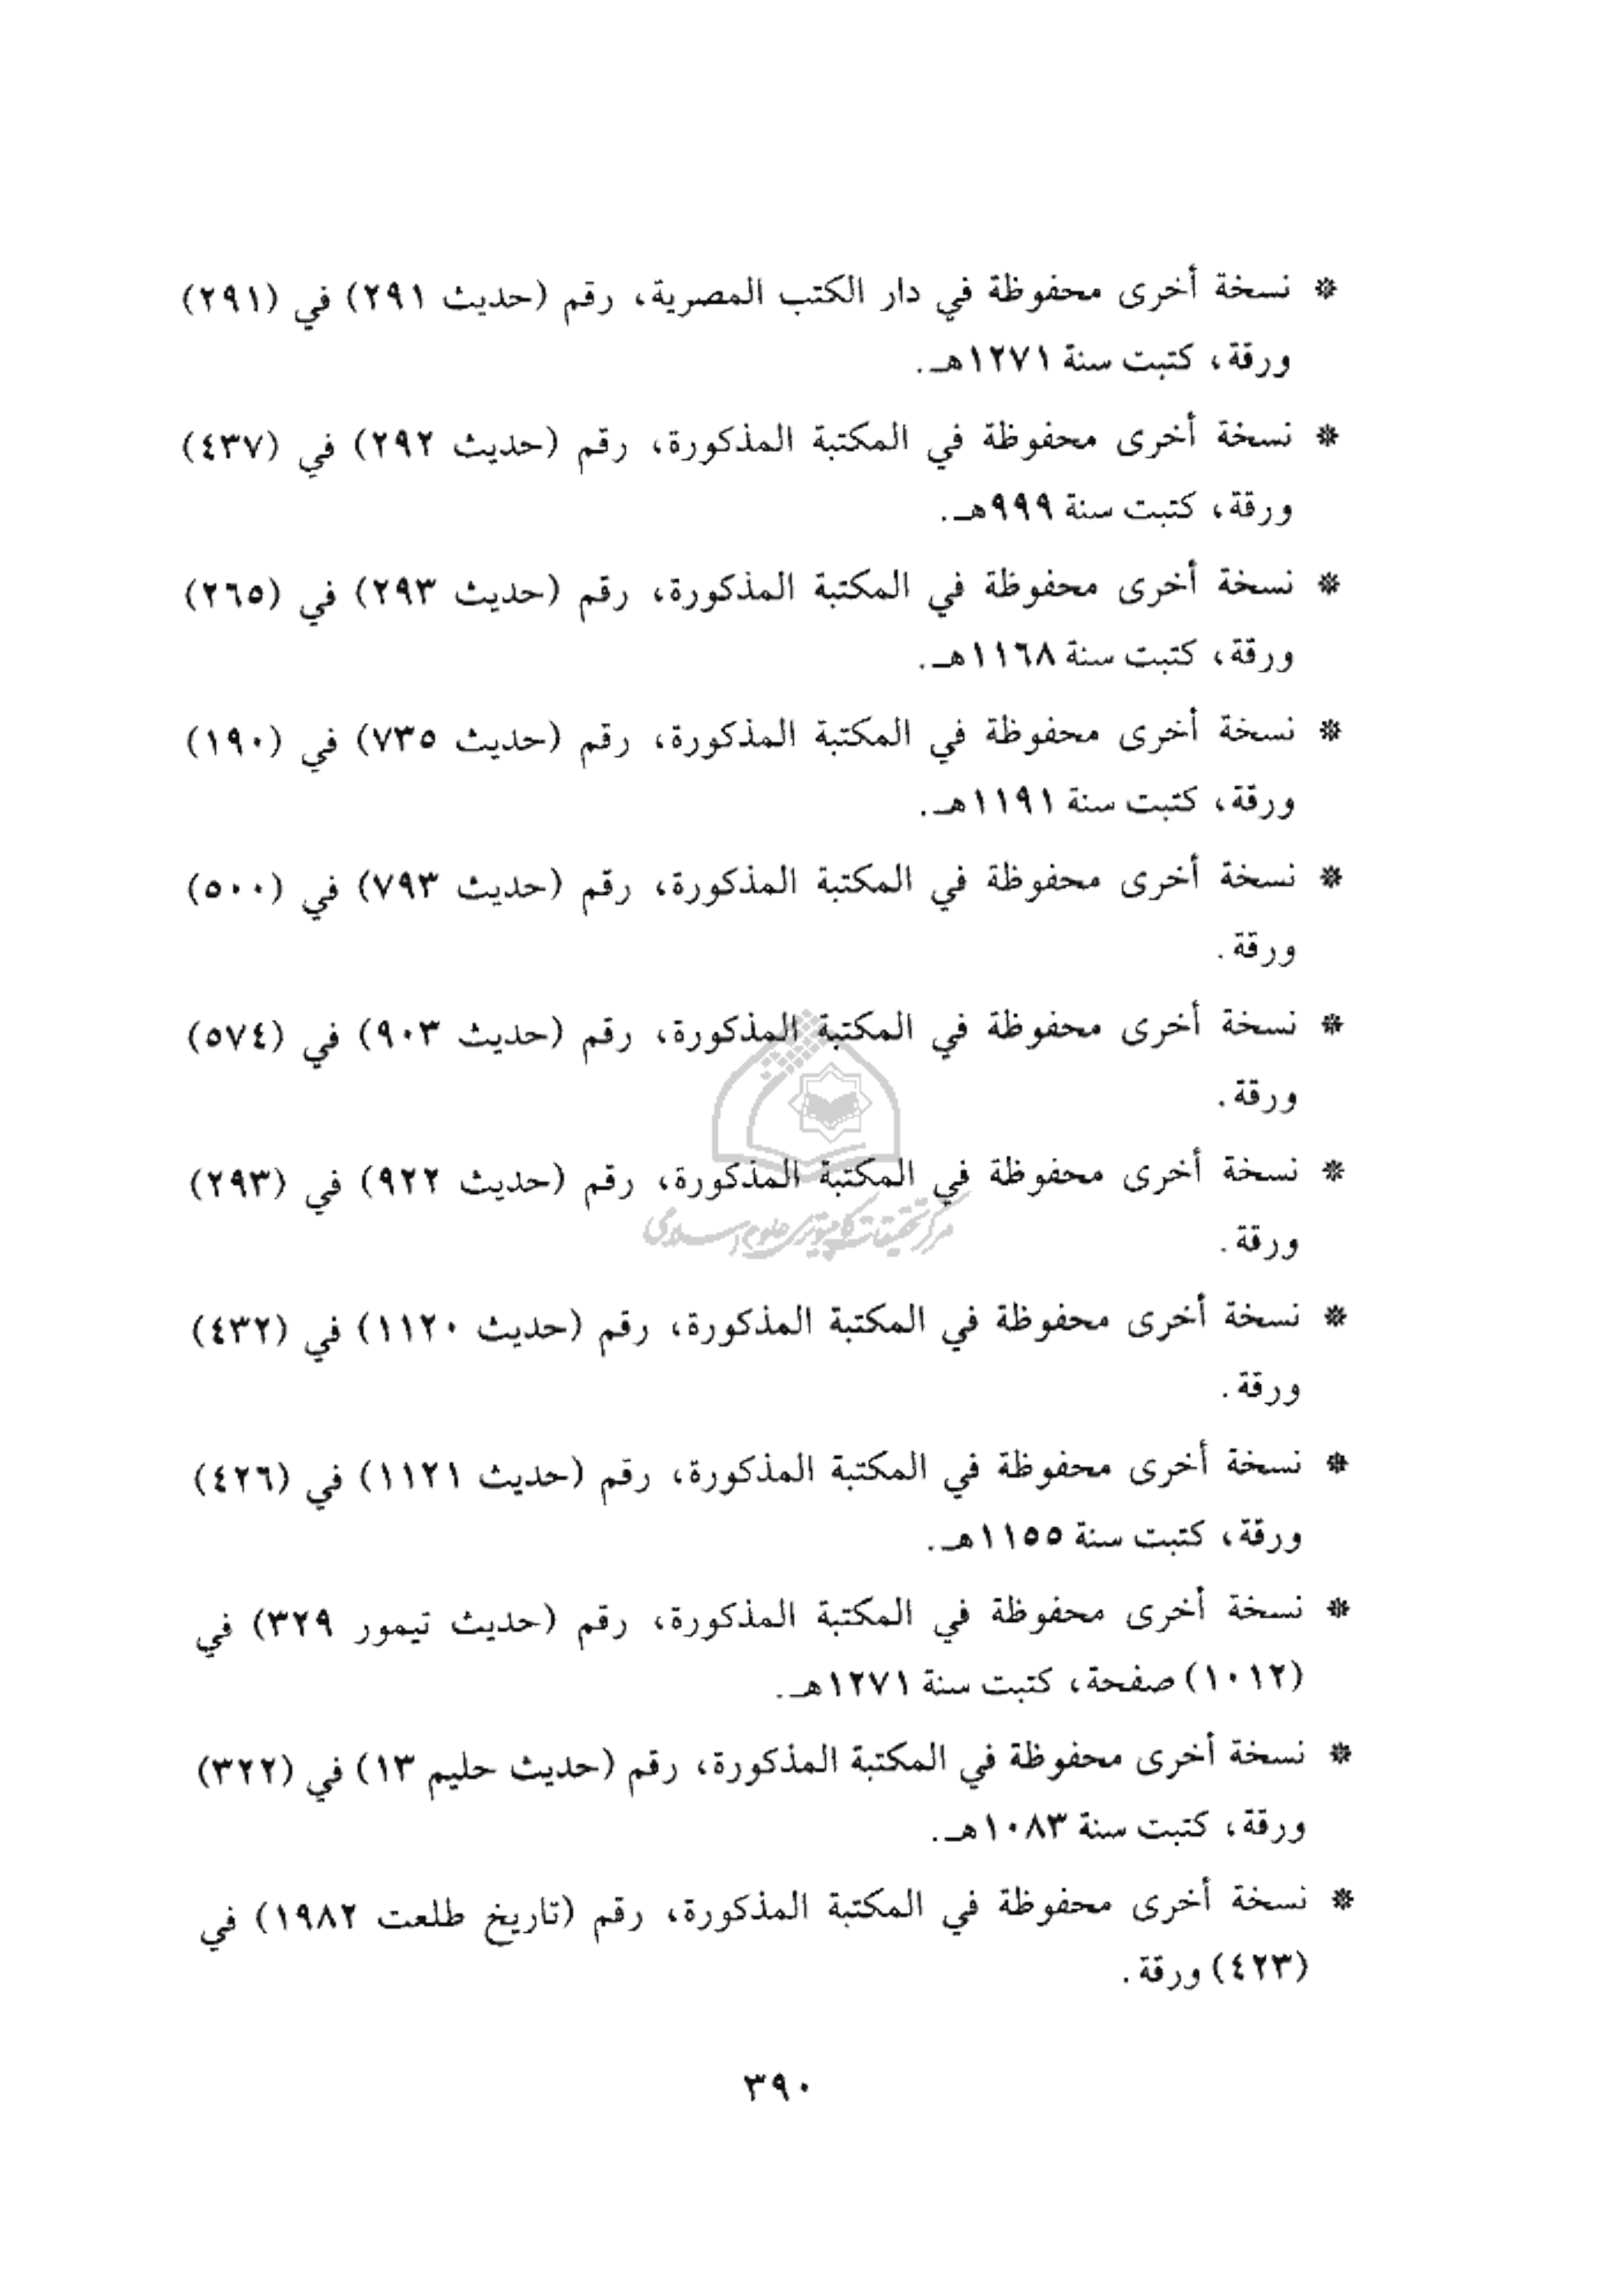 * نسخة أخرى محفوظة في دار الكتب المصرية، رقم (حديث ٢٩١) في (٢٩١)
ورقة، كتبت سنة ١٢٧١هـ.
* نسخة أخرى محفوظة في المكتبة المذكورة، رقم (حديث ٢٩٢) في (٤٣٧)
ورقة، كتبت سنة ٩٩٩هـ.
* نسخة أخرى محفوظة في المكتبة المذكورة، رقم (حديث ٢٩٣) في (٢٦٥)
ورقة، كتبت سنة ١١٦٨هـ.
* نسخة أخرى محفوظة في المكتبة المذكورة، رقم (حديث ٧٣٥) في (١٩٠)
ورقة، كتبت سنة ١١٩١هـ.
* نسخة أخرى محفوظة في المكتبة المذكورة، رقم (حديث ٧٩٣) في (٥٠٠)
ورقة.
* نسخة أخرى محفوظة في المكتبة المذكورة، رقم (حديث ٩٠٣) في (٥٧٤)
ورقة.
* نسخة أخرى محفوظة في المكتبة المذكورة، رقم (حديث ٩٢٢) في (٢٩٣)
مركز تحقيقات كامپيوتري علوم اسلامي
ورقة.
* نسخة أخرى محفوظة في المكتبة المذكورة، رقم (حديث ١١٢٠) في (٤٣٢)
ورقة.
* نسخة أخرى محفوظة في المكتبة المذكورة، رقم (حديث ١١٢١) في (٤٢٦)
ورقة، كتبت سنة ١١٥٥هـ.
* نسخة أخرى محفوظة في المكتبة المذكورة، رقم (حديث تيمور ٣٢٩) في
(١٠١٢) صفحة، كتبت سنة ١٢٧١هـ.
* نسخة أخرى محفوظة في المكتبة المذكورة، رقم (حديث حليم ١٣) في (٣٢٢)
ورقة، كتبت سنة ١٠٨٣هـ.
* نسخة أخرى محفوظة في المكتبة المذكورة، رقم (تاريخ طلعت ١٩٨٢) في
(٤٢٣) ورقة.
٣٩٠